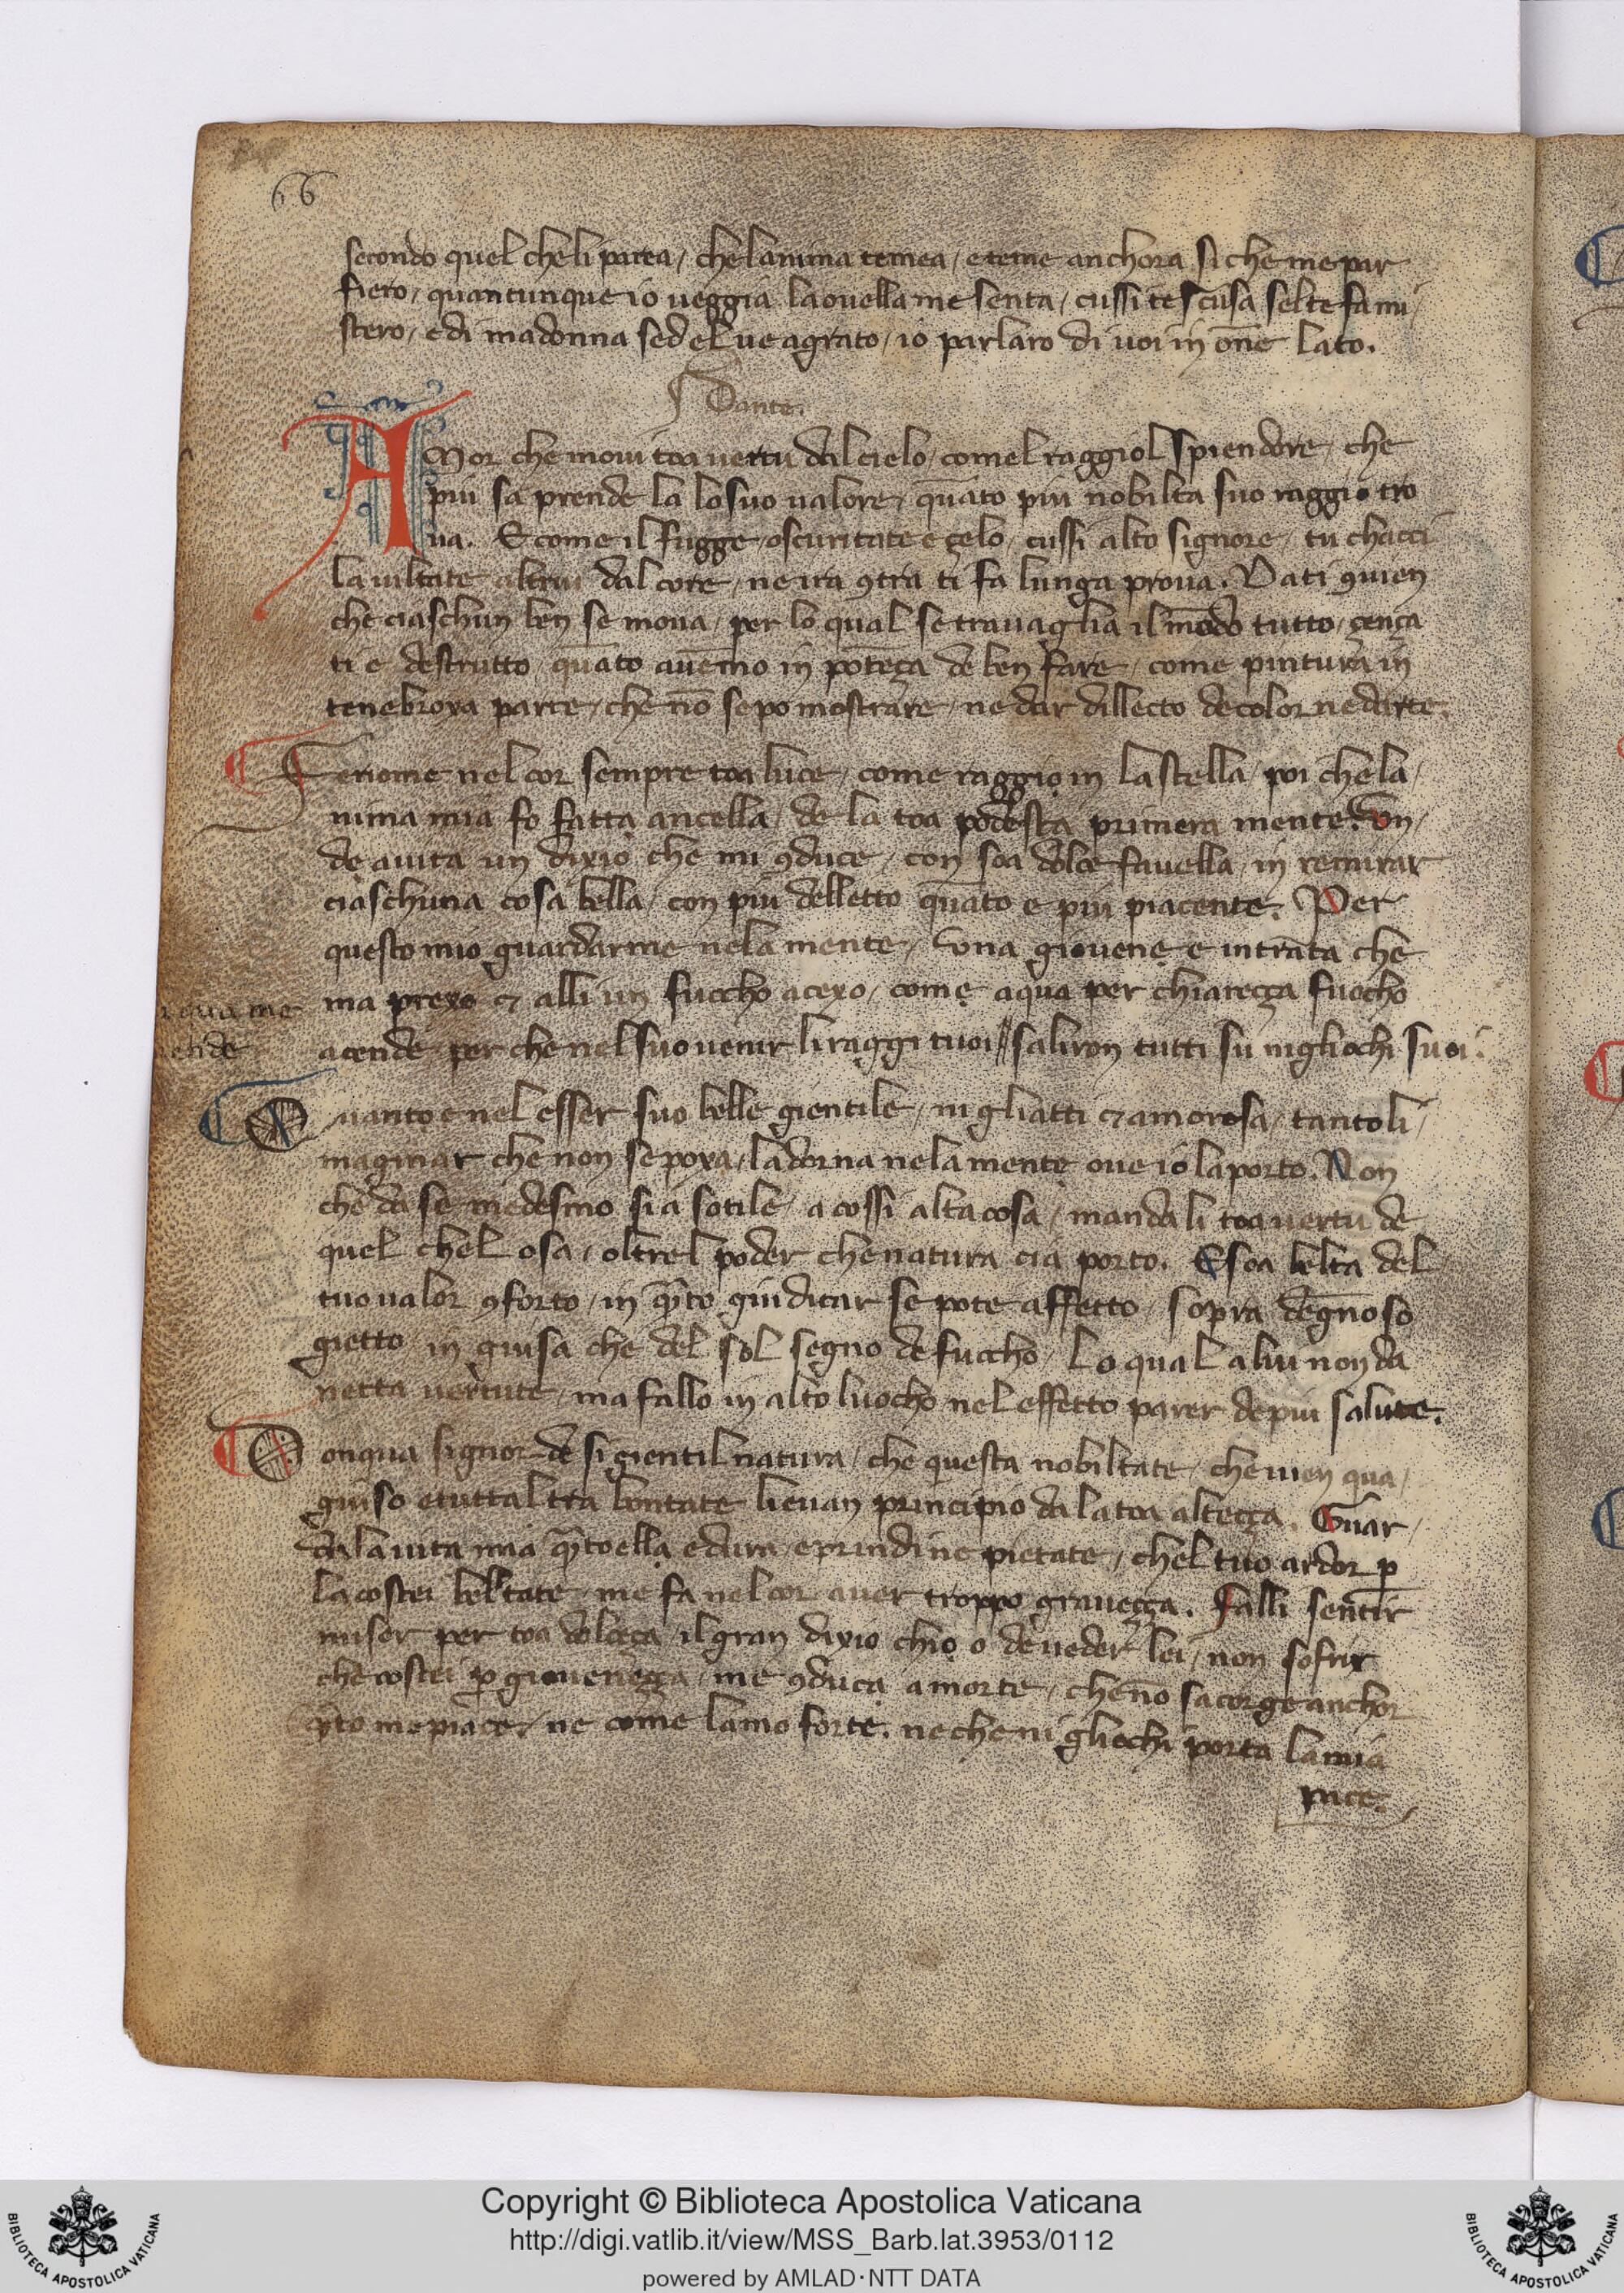 66
secondo quel cheli parea / che lanima temea / e teme anchora si che me par
fiero / quantunque io ueggia laouella me senta / cussi te scusa sel te fa mi/
stero / e di madonna sed el ue agrato / io parlaro di uoi in o͞ne lato.
Dante.
AMor che moui toa uertu dal cielo / comel raggiol spiendore / che
piu sa prende la lo suo ualore / qua͞to piu nobilta suo raggio tro
ua. E come il fugge oscuritate e çelo / cussi alto signore / tu chacci
la uiltate altrui dal core / ne ira ꝯtra ti fa lunga proua. Da ti ꝯuien
che ciaschun ben se moua / per lo qual se trauaglia il mo͞do tutto / çença
ti e destrutto / qua͞to aue͞mo in pote͞ça de ben fare / come pintura in
tenebroxa parte / che no͞ se po mostrare / ne dar dillecto de color ne darte.
Feriome nel cor sempre toa luce / come raggio in la stella / poi che la/
nima mia fo fatta ancella / de la toa podesta primera mente. Vn/
de auita un dixio che mi ꝯduce / con soa dolce fauella / in remirar
ciaschuna cosa bella / con piu delletto qua͞to e piu piacente. Per
questo mio guardar me nela mente / vna giouene e intrata che
ma prexo & alli un fuocho acexo / come aqua per chiareçça fuocho
acende / per che nel suo uenir li raggi tuoi // saliron tutti su nigliochi suoi.
Quanto e nel esser suo belle gientile / nigliatti & amorosa / tanto li/
maginar che non se poxa / ladorna nela mente oue io la porto. Non
che da se medesmo sia sotile / a cossi alta cosa / mandali toa uertu de
quel chel osa / oltrel poder che natura cia porto. E soa belta del
tuo ualor ꝯforto / in q͞to giudicar se pote affetto / sopra degno so
gietto / in guisa che del sol segno de fuocho / lo qual a lui non da
netta uertute / ma fallo in alto luocho nel effetto parer de piu salute.
Donqua signor de si gientil natura / che questa nobiltate / che uien qua/
giuso e tuttaltra bontate lieuan principio da la toa alteçça. Guar/
da la uita mia q͞to ella e dura / e prindine pietate / chel tuo ardor ꝑ
la costei beltate / me fa nel cor auer troppo graueçça. Falli sentir
miser per toa dolceça il gran dixio chio o de ueder lei / non sofrir
che costei ꝑ giouene̅ça / me ꝯduca a morte / che no͞ sacorge anchor
q͞to me piace / ne come lamo forte. ne che ni gliochi porta la mia
pace.